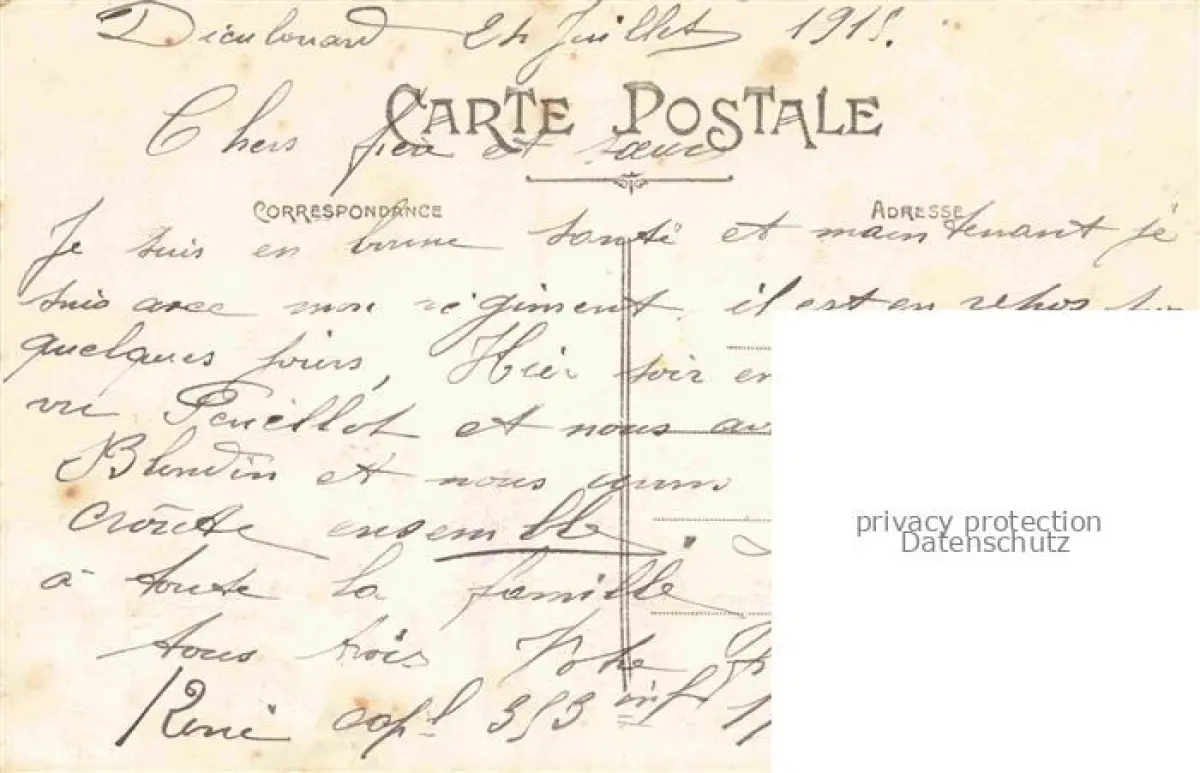 Dieulouard 24 Juillet 1915.
CARTE POSTALE
Chers frère et sœur
CORRESPONDANCE
ADRESSE
Je suis en bonne santé et maintenant je
suis avec mon régiment, il est en repos
quelques jours, Hier soir
vu et nous
Blondin et nous
croûte ensemble.
à toute la famille
tous trois Votre
René cap.l 353 inf
privacy protection
Datenschutz